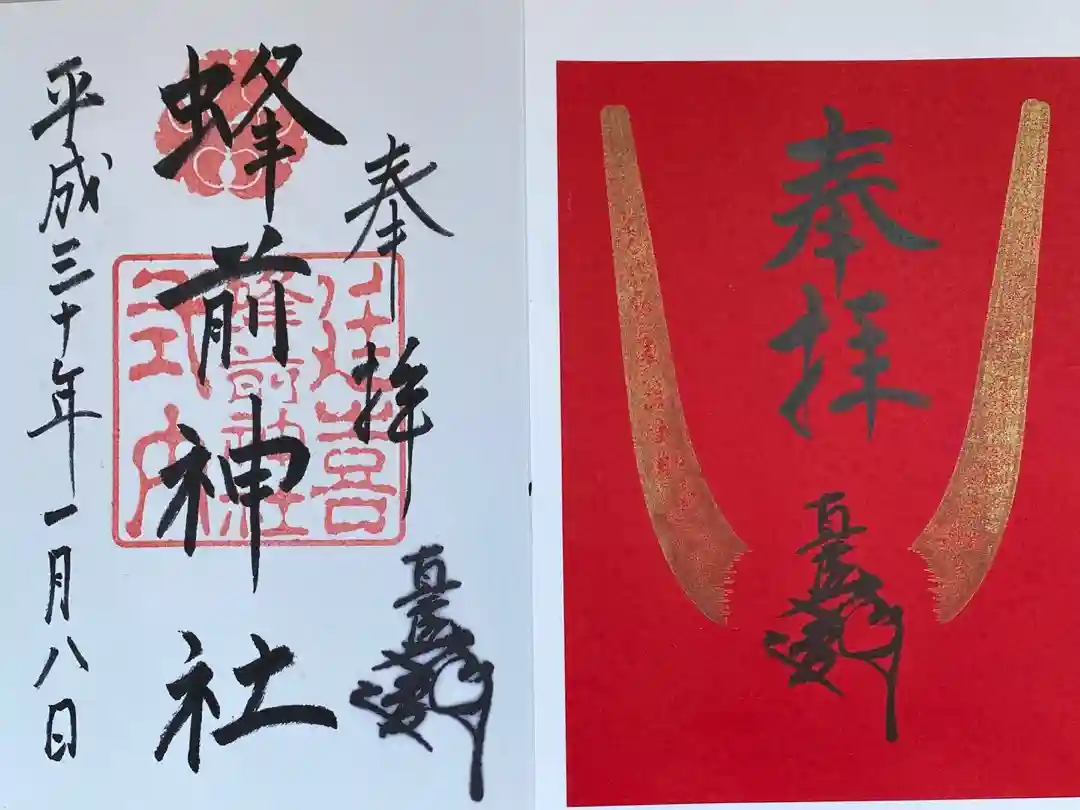 奉拝
直虎
奉拝
直虎
蜂前神社
延喜
蜂前神社
式内
平成三十年一月八日